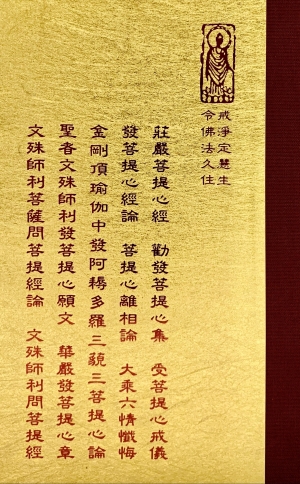 戒淨定慧生
令佛法久住
莊嚴菩提心經　勸發菩提心集　受菩提心戒儀
發菩提心經論　菩提心離相論　大乘六情懺悔
金剛頂瑜伽中發阿耨多羅三藐三菩提心論
聖者文殊師利發菩提心願文　華嚴發菩提心章
文殊師利菩薩問菩提經論　文殊師利問菩提經